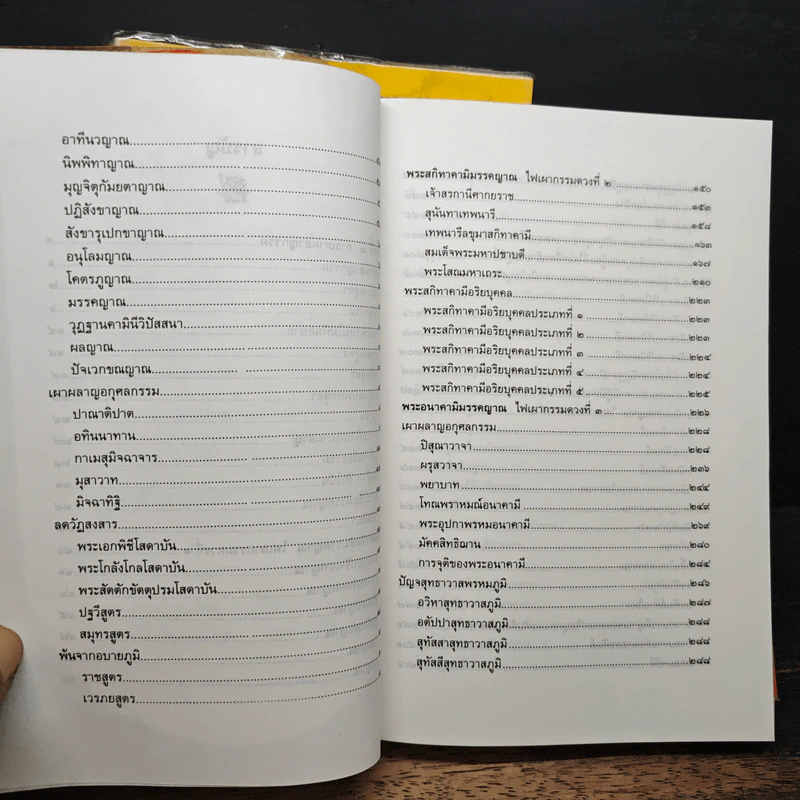 อาทีนวญาณ
นิพพิทาญาณ
มุญจิตุกัมยตาญาณ
ปฏิสังขาญาณ
สังขารุเปกขาญาณ
อนุโลมญาณ
โคตรภูญาณ
มรรคญาณ
วุฏฐานคามินีวิปัสสนา
ผลญาณ
ปัจเวกขณญาณ
เผาผลาญอกุศลกรรม
ปาณาติปาต
อทินนาทาน
กาเมสุมิจฉาจาร
มุสาวาท
มิจฉาทิฐิ
ลดวัฏสงสาร
พระเอกพิชีโสดาบัน
พระโกลังโกลโสดาบัน
พระสัตตักขัตตุปรมโสดาบัน
ปฐวีสูตร
สมุทรสูตร
พ้นจากอบายภูมิ
ราชสูตร
เวรภยสูตร
พระสกิทาคามิมรรคญาณ ไฟเผากรรมดวงที่ ๒ ๑๕๐
เจ้าสรกานีศากยราช ๑๕๓
สุนันทาเทพนารี ๑๕๘
เทพนารีลขุมาสกิทาคามี ๑๖๓
สมเด็จพระมหาปชาบดี ๑๖๗
พระโสณมหาเถระ ๒๑๐
พระสกิทาคามีอริยบุคคล ๒๒๓
พระสกิทาคามีอริยบุคคลประเภทที่ ๑ ๒๒๓
พระสกิทาคามีอริยบุคคลประเภทที่ ๒ ๒๒๓
พระสกิทาคามีอริยบุคคลประเภทที่ ๓ ๒๒๔
พระสกิทาคามีอริยบุคคลประเภทที่ ๔ ๒๒๔
พระสกิทาคามีอริยบุคคลประเภทที่ ๕ ๒๒๕
พระอนาคามิมรรคญาณ ไฟเผากรรมดวงที่ ๓ ๒๒๖
เผาผลาญอกุศลกรรม ๒๒๘
ปิสุณาวาจา ๒๒๘
ผรุสวาจา ๒๓๖
พยาบาท ๒๔๔
โทณพราหมณ์อนาคามี ๒๔๙
พระอุปกาพรหมอนาคามี ๒๖๙
มัคคสิทธิฌาน ๒๘๐
การจุติของพระอนาคามี ๒๘๔
ปัญจสุทธาวาสพรหมภูมิ ๒๘๖
อวิหาสุทธาวาสภูมิ ๒๘๗
อตัปปาสุทธาวาสภูมิ ๒๘๘
สุทัสสาสุทธาวาสภูมิ ๒๘๘
สุทัสสีสุทธาวาสภูมิ ๒๘๘